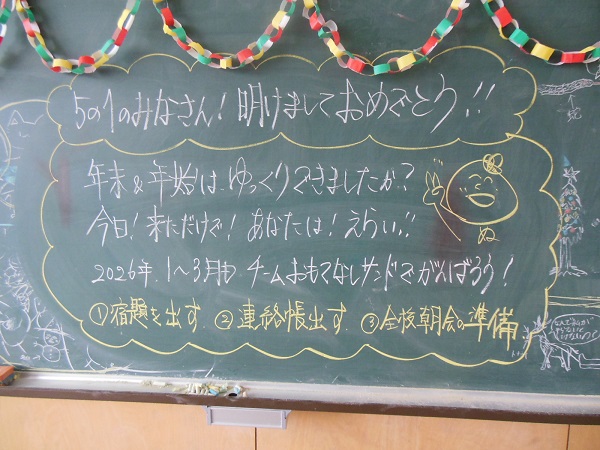 5の1のみなさん！明けましておめでとう!!
年末&年始は、ゆっくりできましたか？
今日！来ただけで！あなたは！えらい!!
2026年、1～3月も チームおもてなしサンドでがんばろう！
①宿題を出す ②連絡帳出す ③全校朝会の準備
ぬ